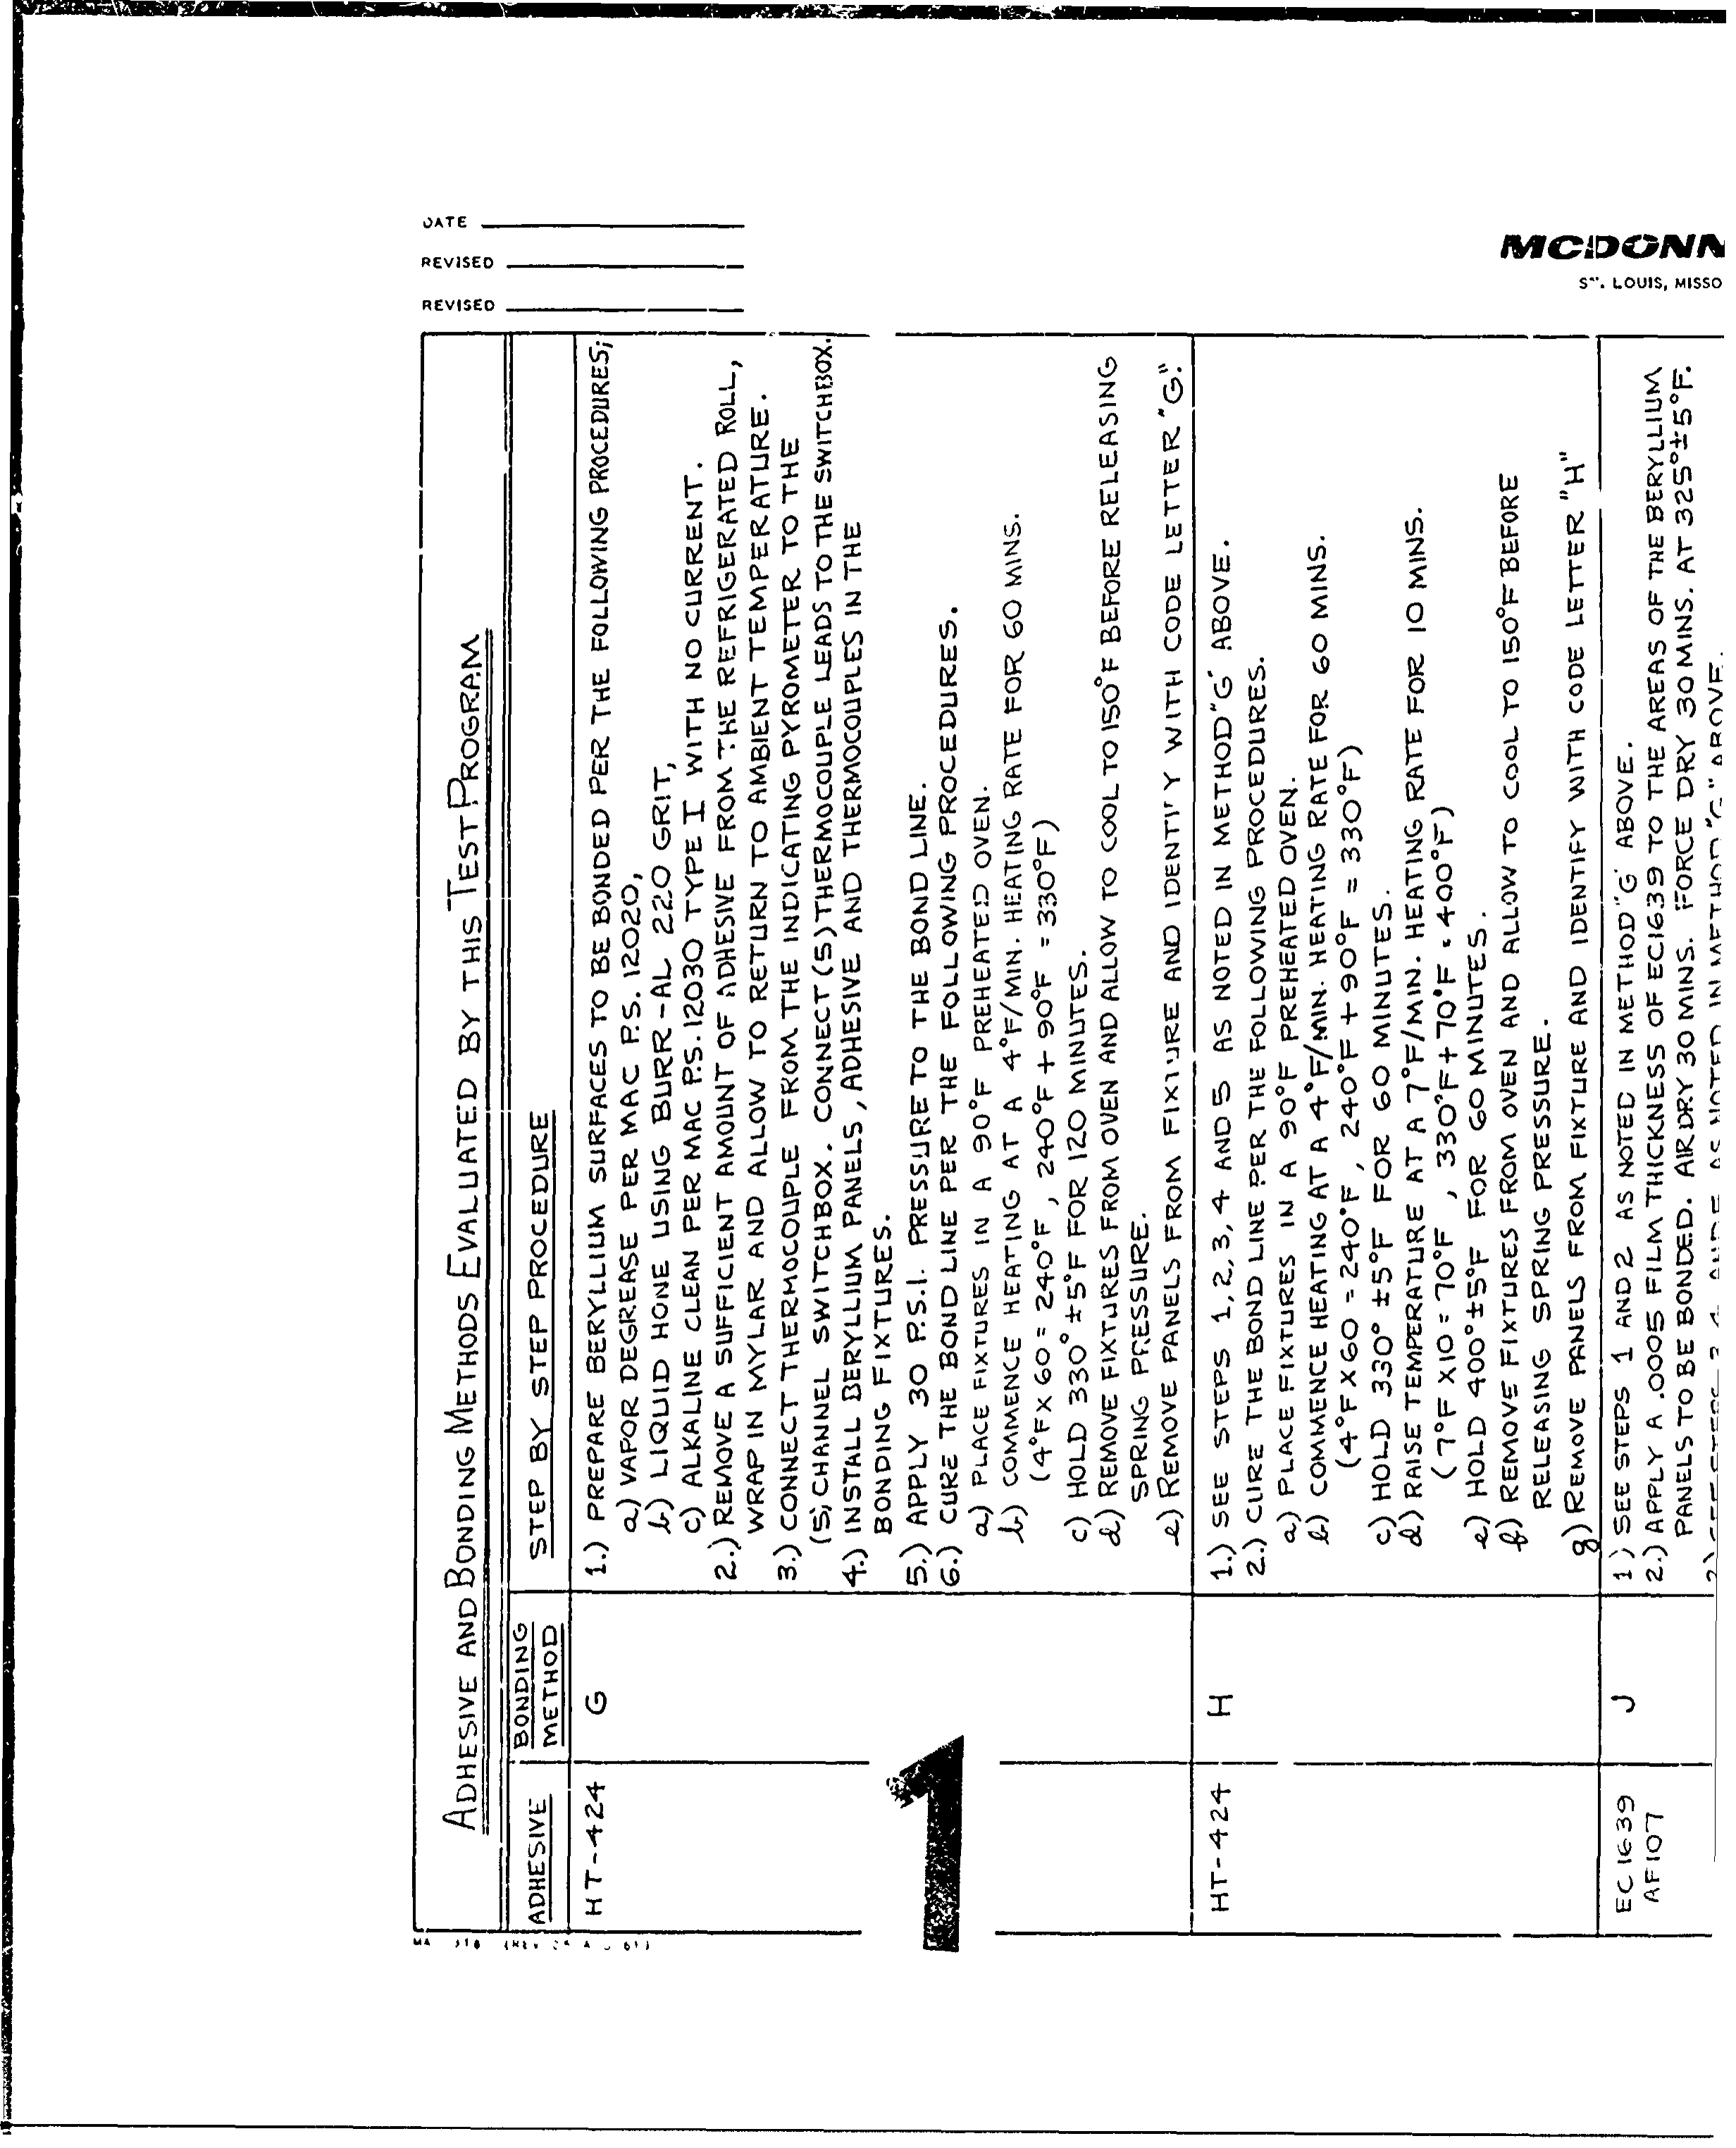 DATE
REVISED
REVISED
MCDONN
ST. LOUIS, MISSO
ADHESIVE AND BONDING METHODS EVALUATED BY THIS TEST PROGRAM
ADHESIVE
BONDING
METHOD
STEP BY STEP PROCEDURE
HT-424
G
1.) PREPARE BERYLLIUM SURFACES TO BE BONDED PER THE FOLLOWING PROCEDURES;
a) VAPOR DEGREASE PER MAC P.S. 12020,
b) LIQUID HONE USING BURR-AL 220 GRIT,
c) ALKALINE CLEAN PER MAC P.S. 12030 TYPE I WITH NO CURRENT.
2.) REMOVE A SUFFICIENT AMOUNT OF ADHESIVE FROM THE REFRIGERATED ROLL,
WRAP IN MYLAR AND ALLOW TO RETURN TO AMBIENT TEMPERATURE.
3.) CONNECT THERMOCOUPLE FROM THE INDICATING PYROMETER TO THE
(5) CHANNEL SWITCHBOX. CONNECT (5) THERMOCOUPLE LEADS TO THE SWITCHBOX.
4.) INSTALL BERYLLIUM PANELS, ADHESIVE AND THERMOCOUPLES IN THE
BONDING FIXTURES.
5.) APPLY 30 P.S.I. PRESSURE TO THE BOND LINE.
6.) CURE THE BOND LINE PER THE FOLLOWING PROCEDURES.
a) PLACE FIXTURES IN A 90°F PREHEATED OVEN.
b) COMMENCE HEATING AT A 4°F/MIN. HEATING RATE FOR 60 MINS.
(4°F X 60 = 240°F, 240°F + 90°F = 330°F)
c) HOLD 330° ±5°F FOR 120 MINUTES.
d) REMOVE FIXTURES FROM OVEN AND ALLOW TO COOL TO 150°F BEFORE RELEASING
SPRING PRESSURE.
e) REMOVE PANELS FROM FIXTURE AND IDENTIFY WITH CODE LETTER "G".
HT-424
H
1.) SEE STEPS 1, 2, 3, 4 AND 5 AS NOTED IN METHOD "G" ABOVE.
2.) CURE THE BOND LINE PER THE FOLLOWING PROCEDURES.
a) PLACE FIXTURES IN A 90°F PREHEATED OVEN.
b) COMMENCE HEATING AT A 4°F/MIN. HEATING RATE FOR 60 MINS.
(4°F X 60 = 240°F, 240°F + 90°F = 330°F)
c) HOLD 330° ±5°F FOR 60 MINUTES.
d) RAISE TEMPERATURE AT A 7°F/MIN. HEATING RATE FOR 10 MINS.
(7°F X 10 = 70°F, 330°F + 70°F = 400°F)
e) HOLD 400° ±5°F FOR 60 MINUTES.
f) REMOVE FIXTURES FROM OVEN AND ALLOW TO COOL TO 150°F BEFORE
RELEASING SPRING PRESSURE.
g) REMOVE PANELS FROM FIXTURE AND IDENTIFY WITH CODE LETTER "H"
EC1639
AF107
J
1) SEE STEPS 1 AND 2 AS NOTED IN METHOD "G" ABOVE.
2.) APPLY A .0005 FILM THICKNESS OF EC1639 TO THE AREAS OF THE BERYLLIUM
PANELS TO BE BONDED. AIR DRY 30 MINS. FORCE DRY 30 MINS. AT 325° ±5°F.
AS NOTED IN METHOD "G" ABOVE.
1